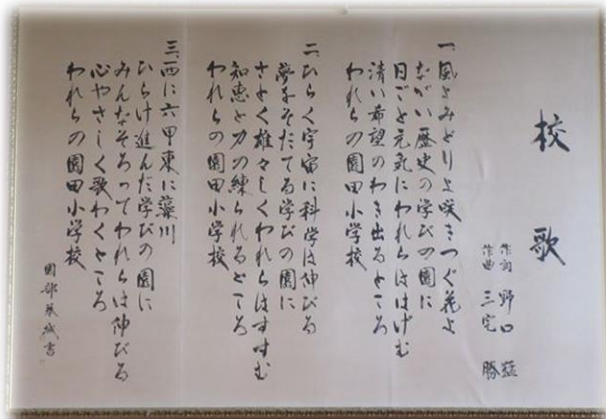 校歌
作詞 野口 猛
作曲 三宅 勝
一、風よみどりよ咲きつぐ花よ
ながい歴史の学びの園に
日ごと元気にわれらははげむ
清い希望のわき出るところ
われらの園田小学校
二、ひらく宇宙に科学は伸びる
夢をそだてる学びの園に
さとく雄々しくわれらはすすむ
知恵と力の練られるところ
われらの園田小学校
三、西に六甲東に藻川
ひらけ進んだ学びの園に
みんなそろってわれらは伸びる
心やさしく歌わくところ
われらの園田小学校
園部 書